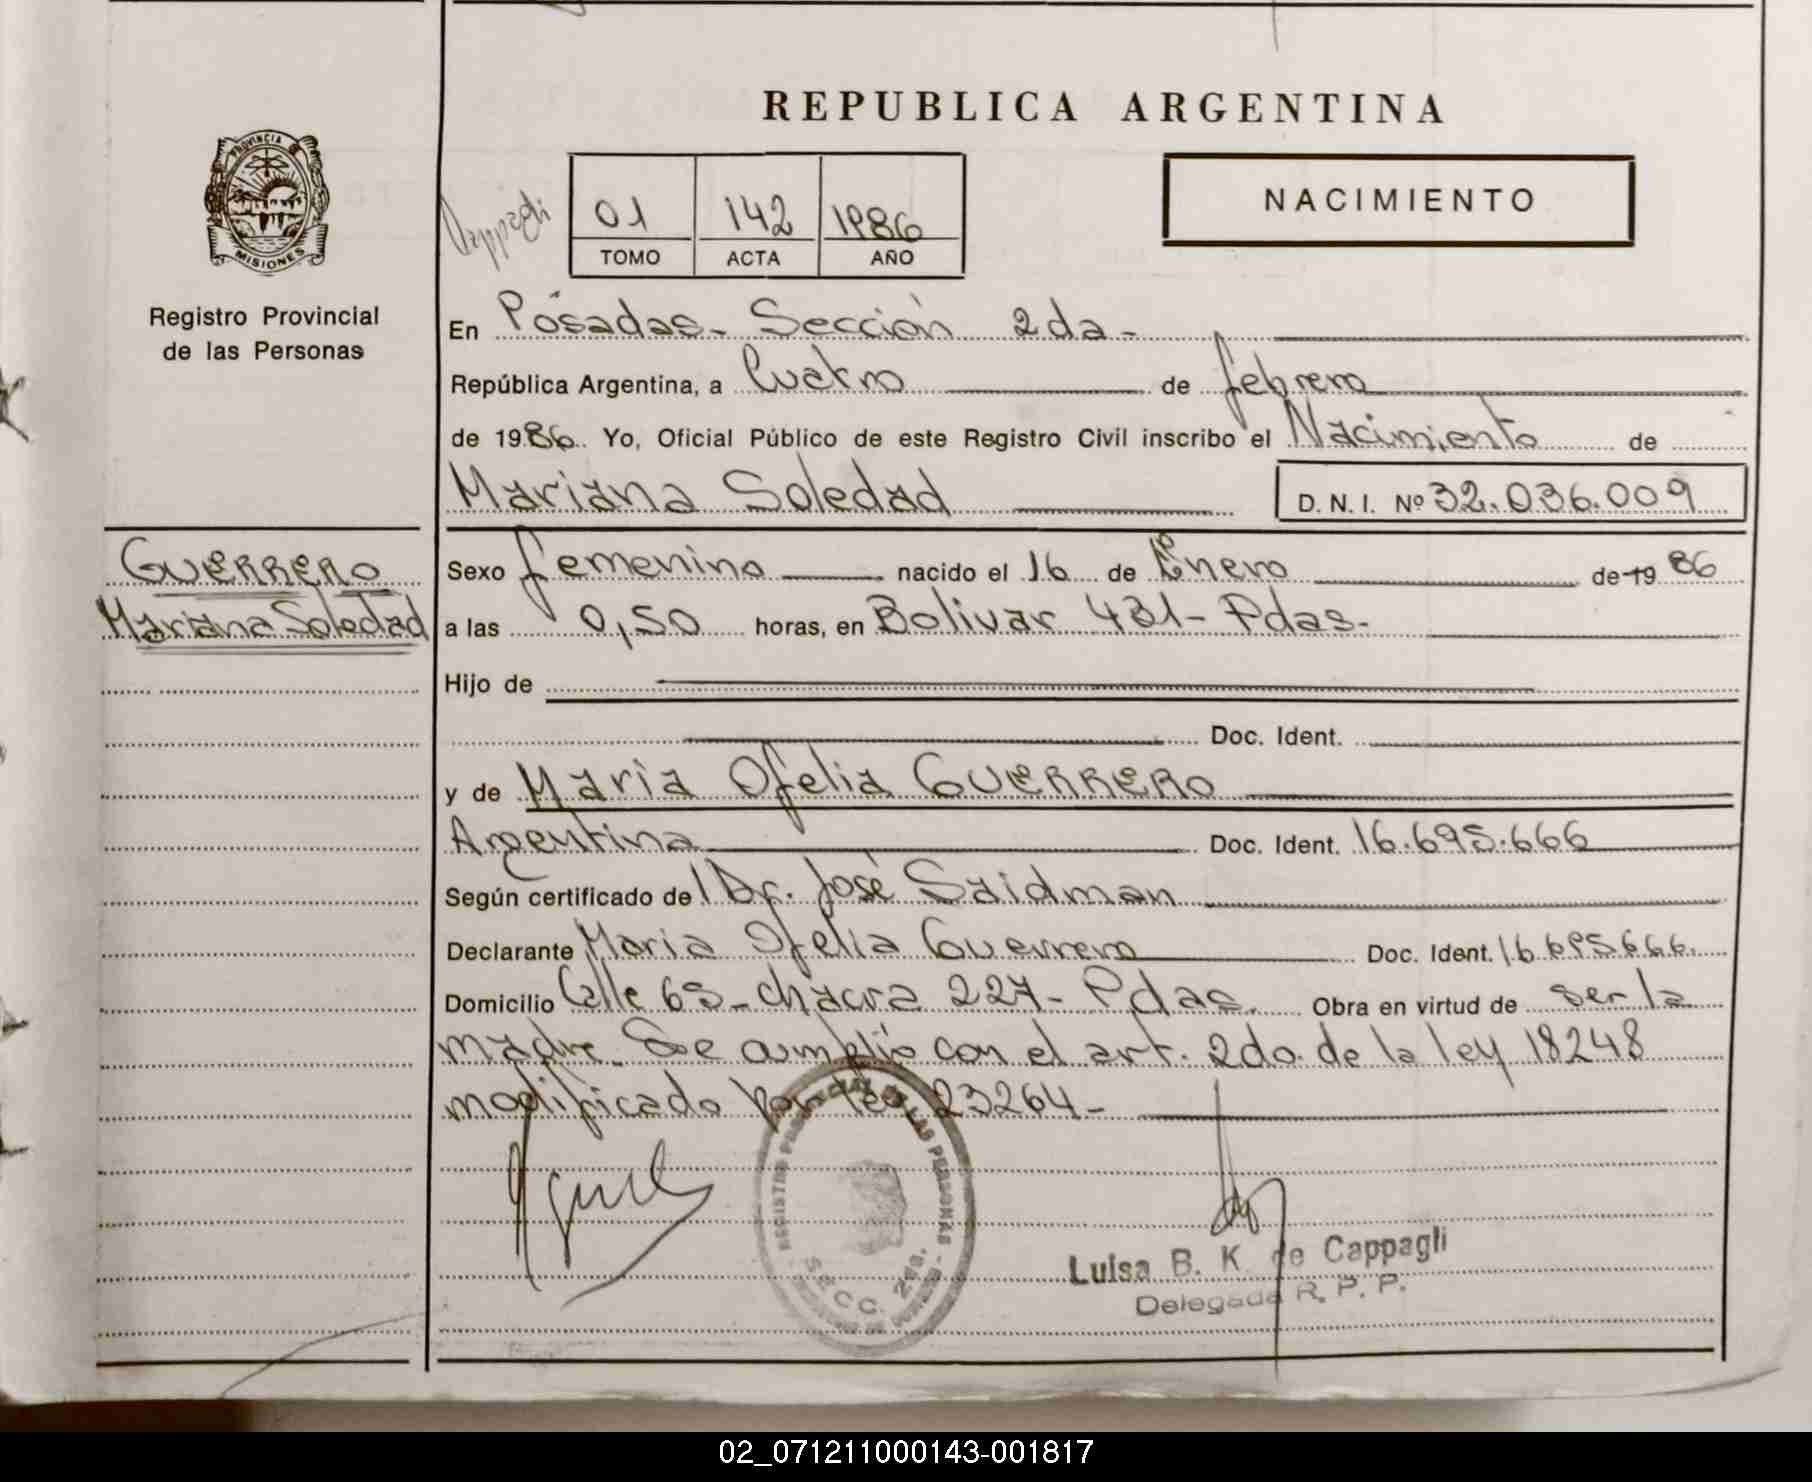 REPUBLICA ARGENTINA
PROVINCIA
MISIONES
Registro Provincial
de las Personas
Cappagli
01 142 1986
TOMO ACTA AÑO
NACIMIENTO
En Pósadas - Sección 2da -
República Argentina, a Cuatro de febrero
de 1986. Yo, Oficial Público de este Registro Civil inscribo el Nacimiento de
Mariana Soledad D. N. I. Nº 32.036.009
GUERRERO
Mariana Soledad
Sexo femenino nacido el 16 de Enero de 19 86
a las 0,50 horas, en Bolivar 431 - Pdas.
Hijo de
Doc. Ident.
y de Maria Ofelia GUERRERO
Argentina Doc. Ident. 16.695.666
Según certificado de l Dr. José Saidman
Declarante Maria Ofelia Guerrero Doc. Ident. 16.695.666.
Domicilio Calle 65 - chacra 227 - Pdas. Obra en virtud de ser la
madre. Se cumplió con el art. 2do. de la ley 18248
modificado por ley 23264 -
LAS PERSONAS
SECC. 2da.
Luisa B. K. de Cappagli
Delegada R. P. P.
02_071211000143-001817